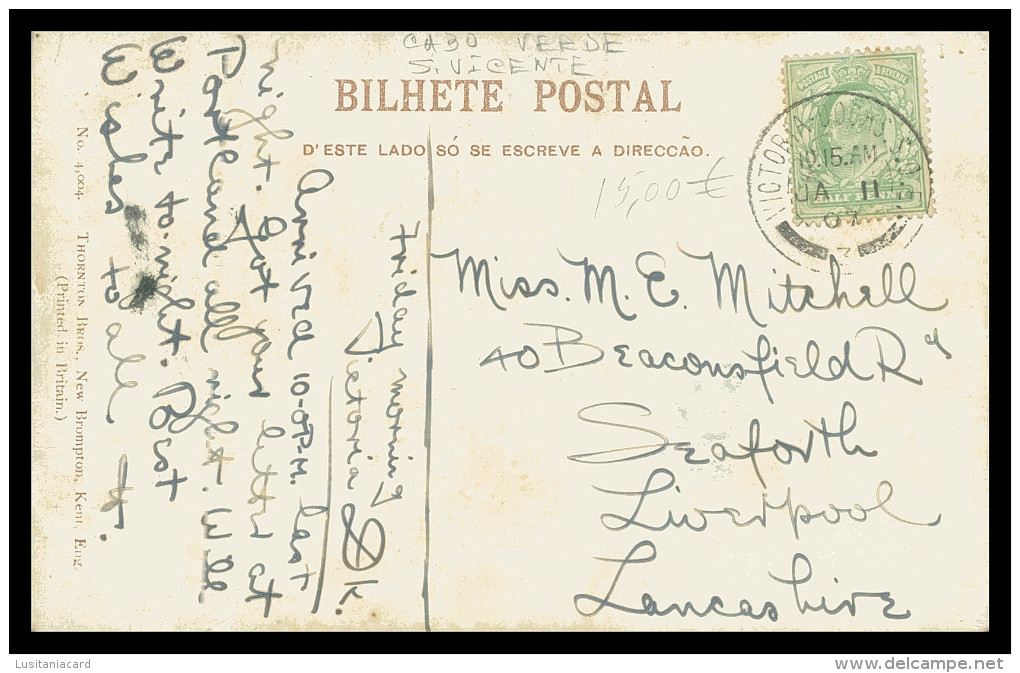 CABO VERDE
S. VICENTE
BILHETE POSTAL
D'ESTE LADO SÓ SE ESCREVE A DIRECCÃO.
15,00€
POSTAGE & REVENUE
VICTORIA DOCKS S.O.
10.15.AM
JA 11
07
3
Miss. M. E. Mitchell
40 Beaconsfield Rd
Seaforth
Liverpool
Lancashire
Friday morning
Victoria Dk.
Arrived 10-0 P.M. last
night. Got your letter at
Portland all right. Will
write to-night. Best
wishes to all
No. 4,004. THORNTON BROS., NEW BROMPTON, KENT, ENG.
(Printed in Britain.)
Lusitaniacard
www.delcampe.net